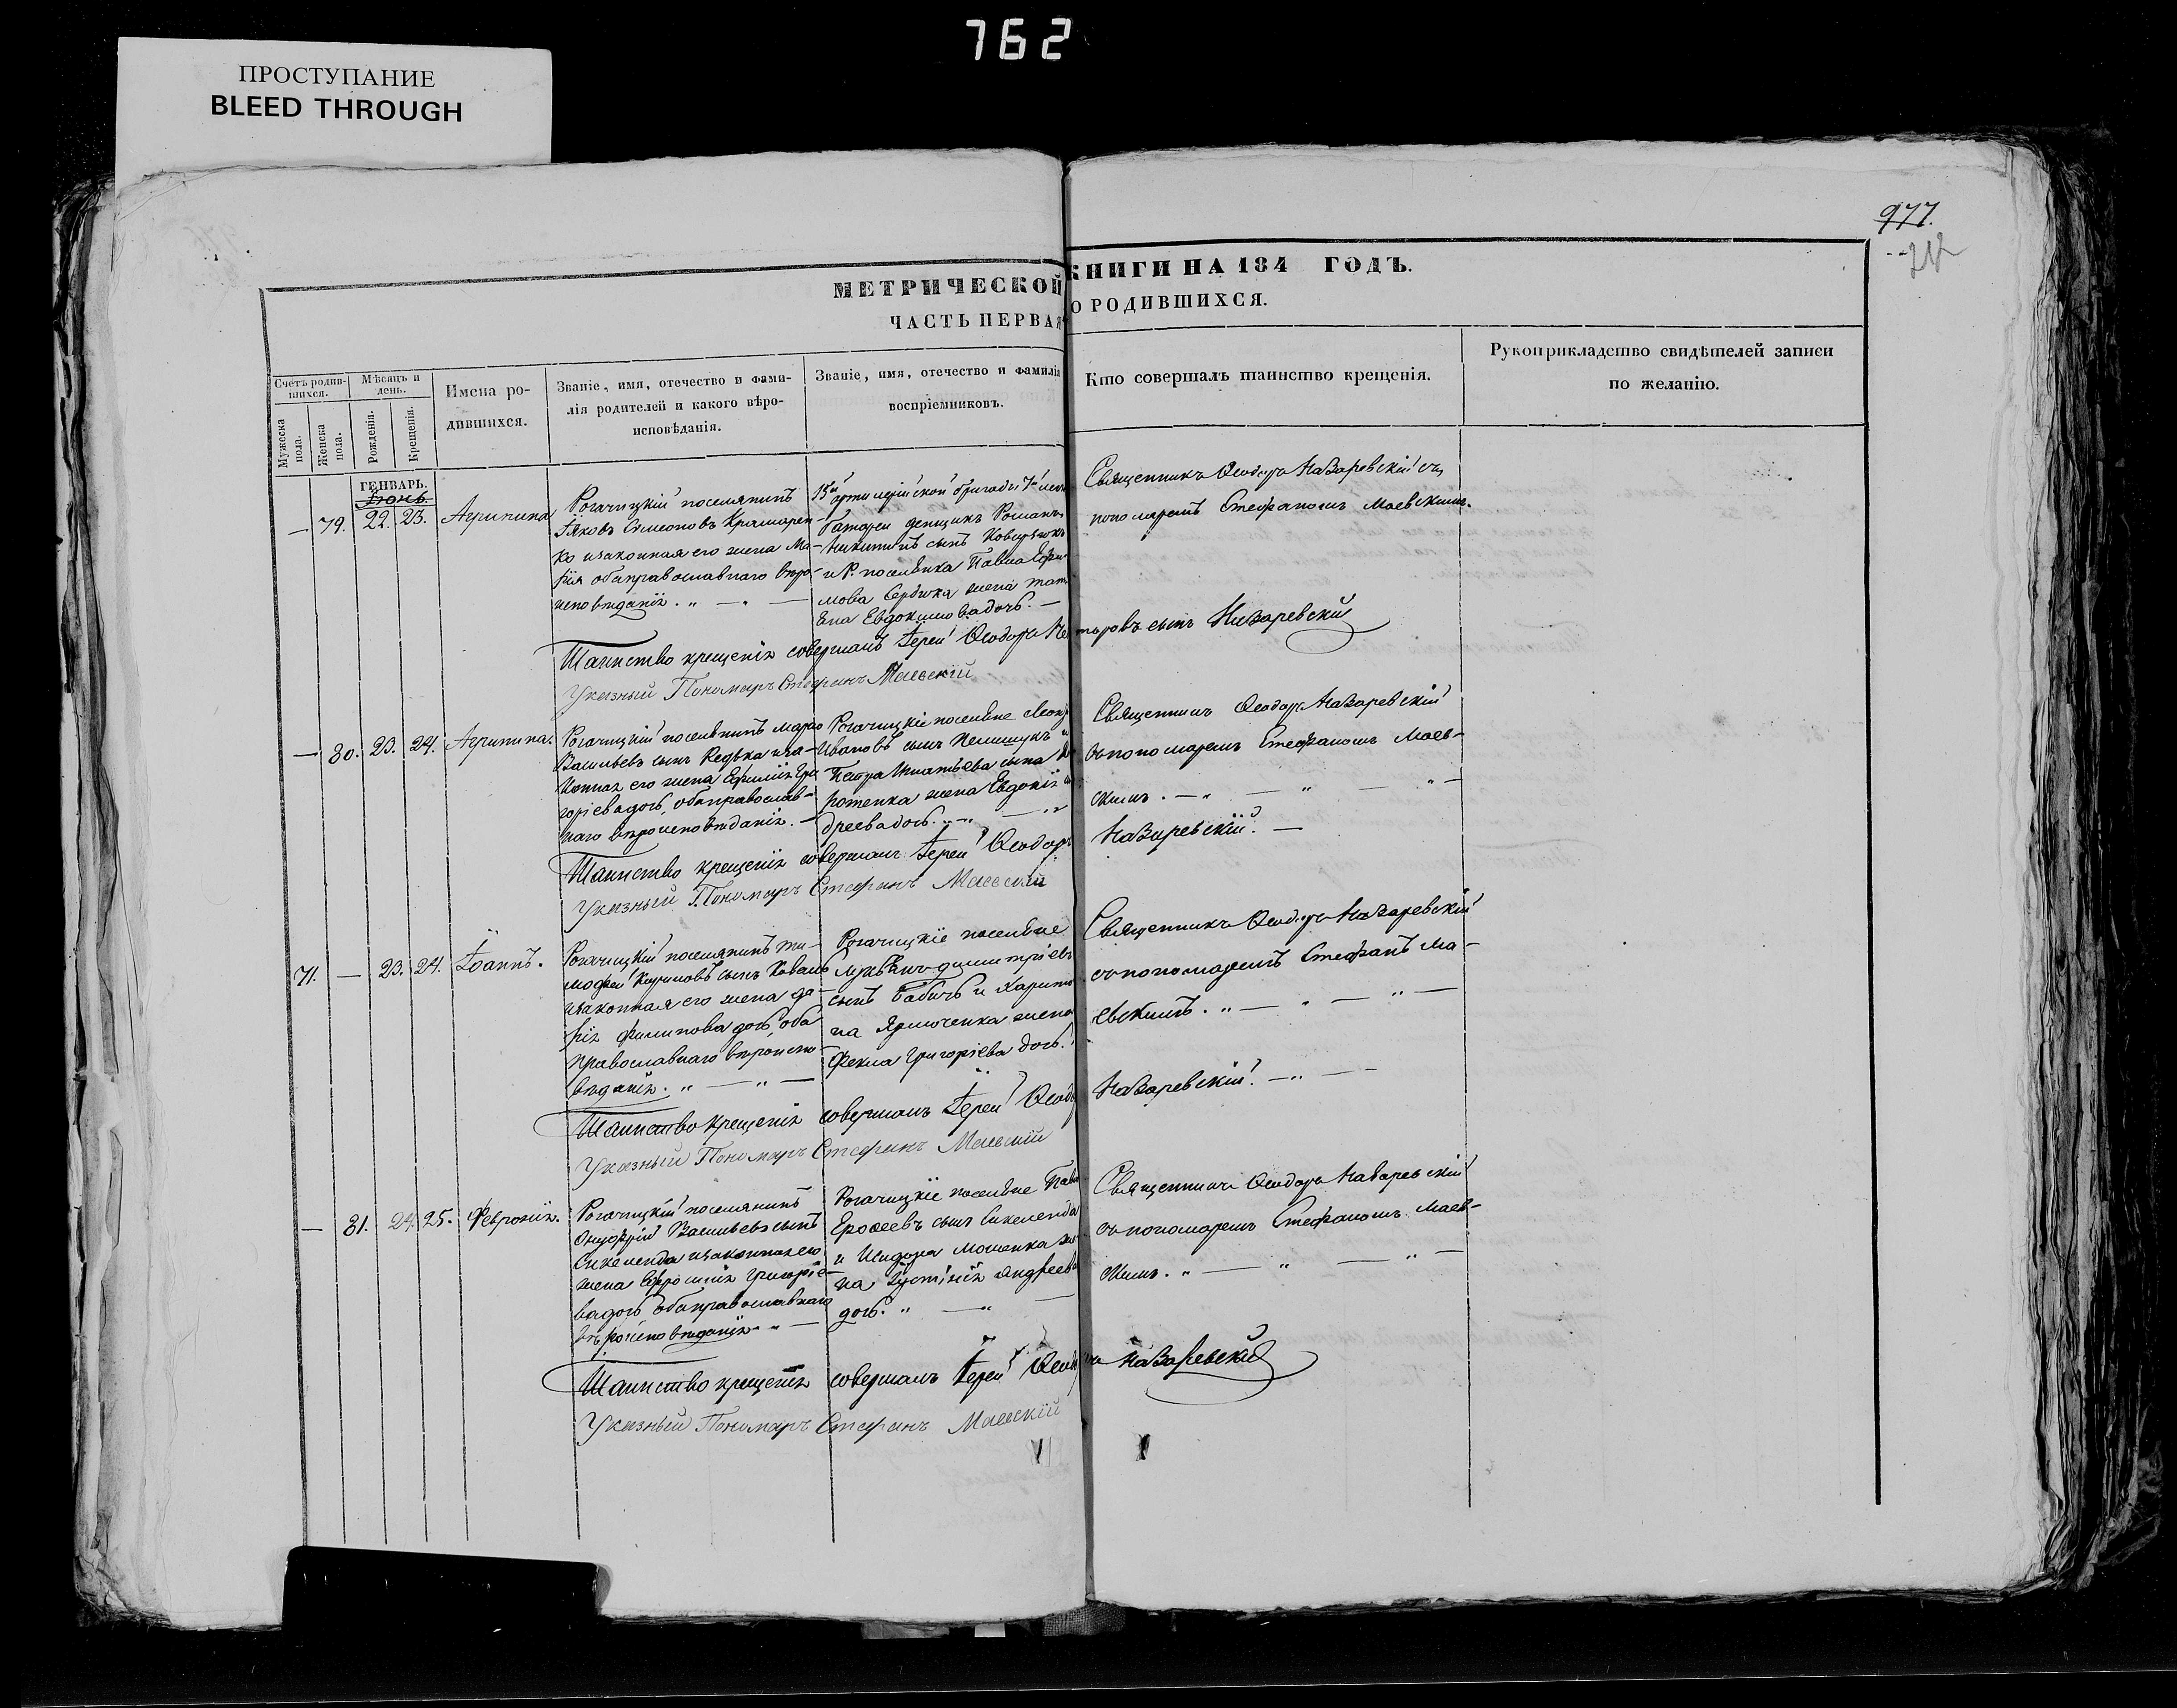 762
ПРОСТУПАНИЕ
BLEED THROUGH
977.
МЕТРИЧЕСКОЙ КНИГИ НА 184 ГОДЪ.
ЧАСТЬ ПЕРВАЯ О РОДИВШИХСЯ.
Счетъ родившихся.
Мужеска пола.
Женска пола.
Мѣсяцъ и день.
Рожденія.
Крещенія.
Имена родившихся.
Званіе, имя, отечество и фамилія родителей и какого вѣроисповѣданія.
Званіе, имя, отечество и фамилія воспріемниковъ.
Кто совершалъ таинство крещенія.
Рукоприкладство свидѣтелей записи по желанію.
ГЕНВАРЬ.
Іюнь.
— 79. 22. 23. Агрипина
Рогачицкій поселянинъ
Іяковъ Симеоновъ Крамарен-
ко изаконная его жена Ма-
рія обаправославнаго вѣро-
исповѣданія. „ — „ —
15й артилерійской бригады 7й
батареи денщикъ Романъ
Никитинъ сынъ
и Р. поселянка Павла Ефи-
мова Сердюка жена Тать
яна Евдокимовадочь. —
Священникъ Ѳеодоръ Назаревскій съ
пономаремъ Стефаномъ Маевскимъ.
Таинство крещенія совершалъ Іерей Ѳеодоръ Петровъ сынъ Назаревскій
Указный Пономарь Стефанъ Маевскій
— 80. 23. 24. Агрипина.
Рогачицкій поселянинъ Марко
Васильевъ сынъ Редька иза-
конная его жена Ефимія Гри
горіевадочь, обаправослав-
наго вѣроисповѣданія. —
Рогачицкіе поселяне
Ивановъ сынъ
Петра Игнатьева сына
жена Евдокія
дреевадочь. „ — „
Священникъ Ѳеодоръ Назаревскій
съпономаремъ Стефаномъ Маев-
скимъ. — „ — „ — „ —
Таинство крещенія совершалъ Іерей Ѳеодоръ Назаревскій. —
Указный Пономарь Стефанъ Маевскій
71. — 23. 24. Іоаннъ.
Рогачицкій поселянинъ Ти-
мофей Кириловъ сынъ Коваль
изаконная его жена Да-
рія Филипова дочь, оба
православнаго вѣроиспо-
вѣданія. „ — „ —
Рогачицкіе поселяне
Лукьянъ Димитріевъ
сынъ Бабичь и Харито
на Ярмоченка жена
Фекла Григоріева дочь.
Священникъ Ѳеодоръ Назаревскій
съпономаремъ Стефанъ Ма-
евскимъ. „ — „ — „ —
Таинство крещенія совершалъ Іерей Ѳеодоръ Назаревскій. — „ —
Указный Пономарь Стефанъ Маевскій
— 81. 24. 25. Февронія.
Рогачицкій поселянинъ
Онуфрій Васильевъ сынъ
изаконная его
жена Ефросинія Григоріе-
вадочь обаправославнаго
вѣроисповѣданія. „ —
Рогачицкіе поселяне Павелъ
Ерофеевъ сынъ
и Исидора Мошенка же
на Іустинія Андреева
дочь. „ — „ —
Священникъ Ѳеодоръ Назаревскій
съпономаремъ Стефаномъ Маев-
скимъ. „ — „ — „ —
Таинство крещенія совершалъ Іерей Ѳеодоръ Назаревскій
Указный Пономарь Стефанъ Маевскій